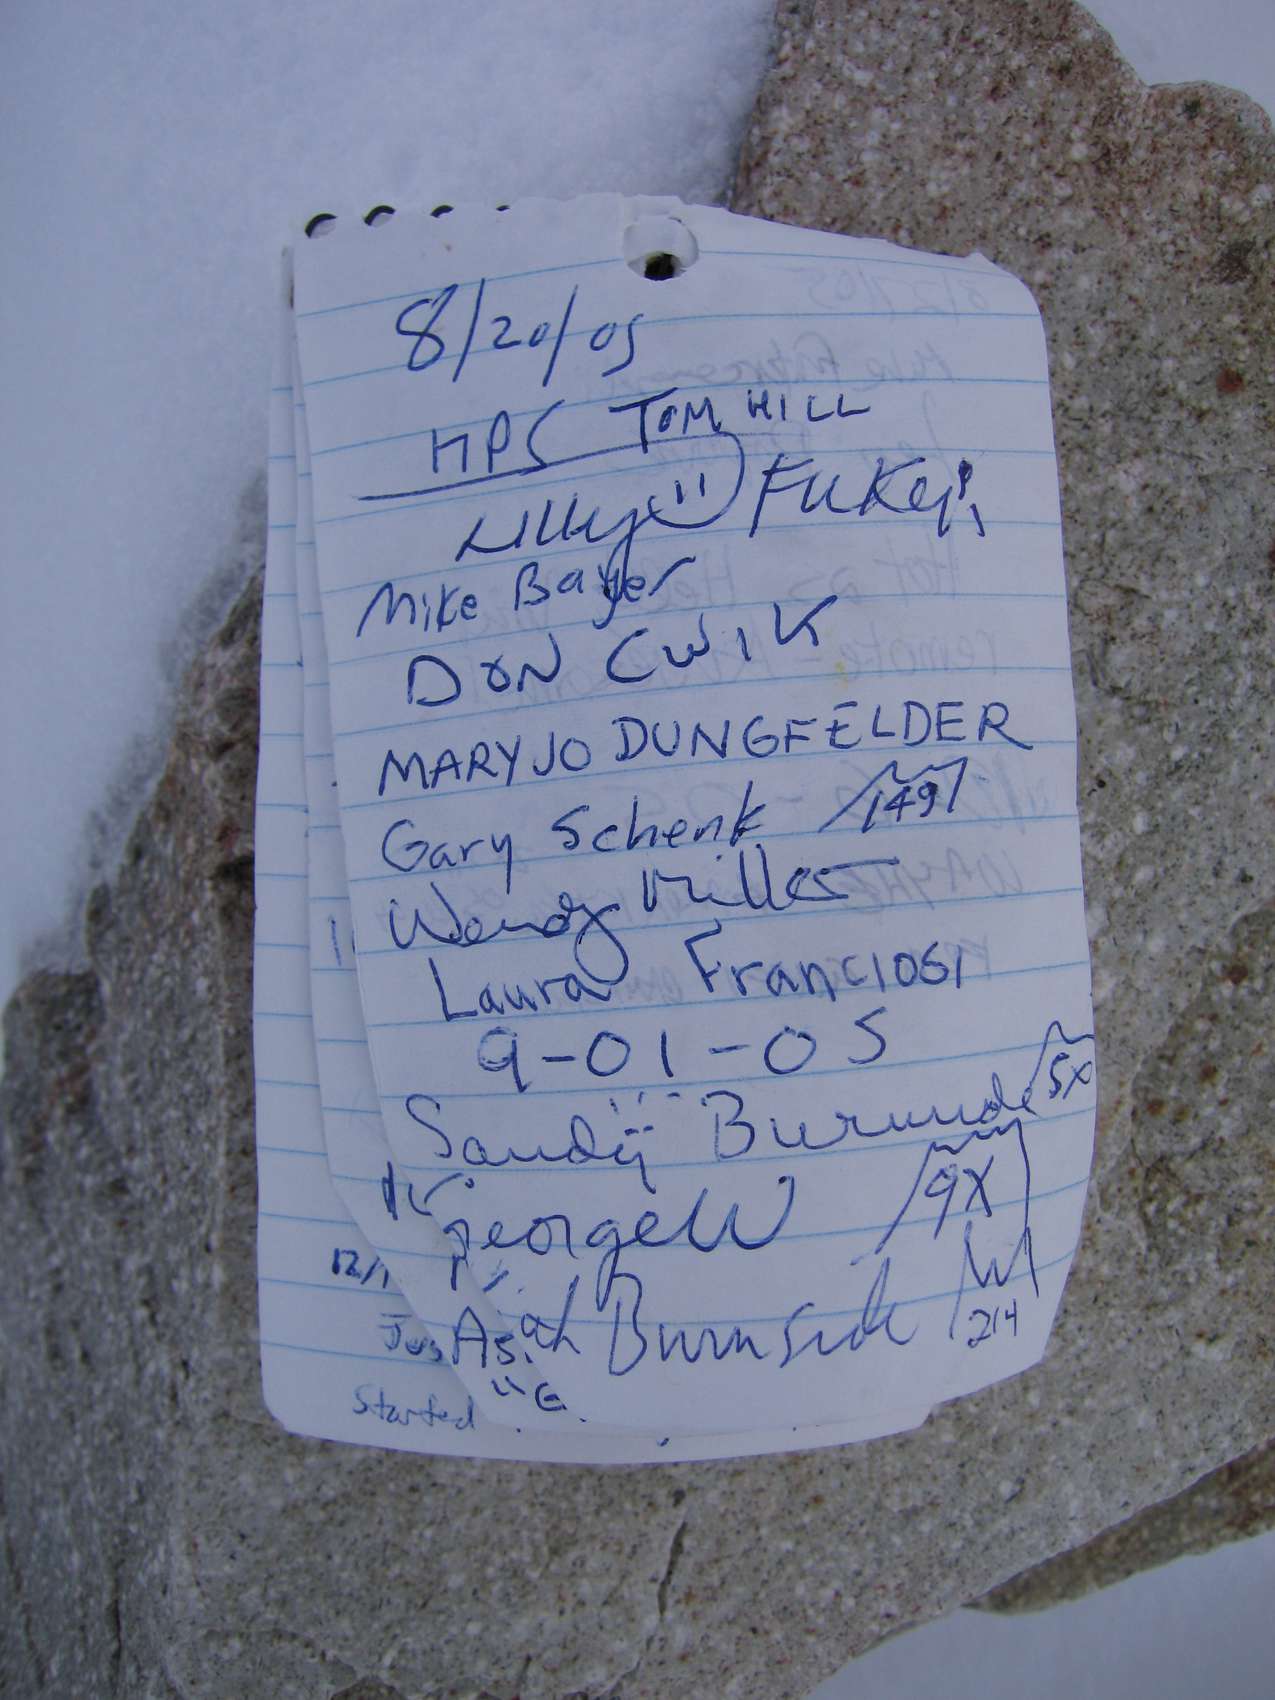 8/20/05
HPS TOM HILL
Lilly Fukei
Mike Bayer
DON CWIK
MARY JO DUNGFELDER
Gary Schenk 149
Wendy Miller
Laura Franciosi
9-01-05
Sandy Burnside 5X
George W 9X
12/1
Burnside 214
Started